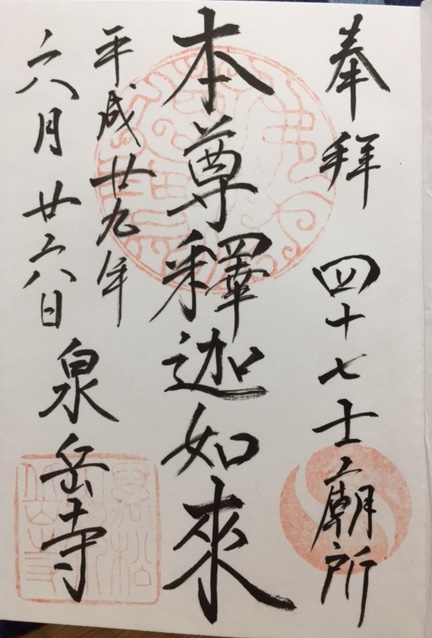 奉拜 四十七士廟所
本尊釋迦如來
平成廿九年
六月廿六日
泉岳寺